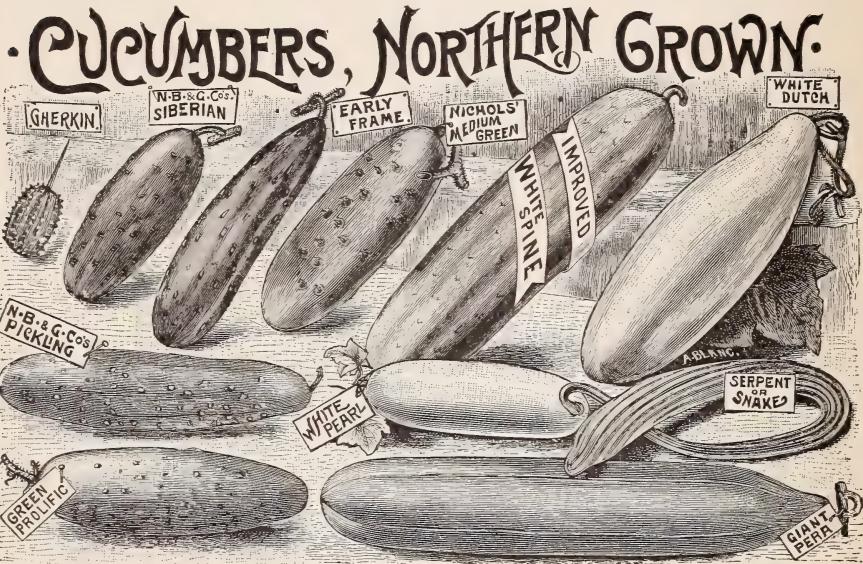 ·CUCUMBERS, NORTHERN GROWN·
GHERKIN.
N·B·&G·Co's·
SIBERIAN
EARLY
FRAME.
NICHOLS'
MEDIUM
GREEN
IMPROVED
WHITE SPINE
WHITE
DUTCH
N·B·&G·Co's
PICKLING
WHITE
PEARL
A.BLANC.
SERPENT
OR
SNAKE
GREEN
PROLIFIC
GIANT
PERA